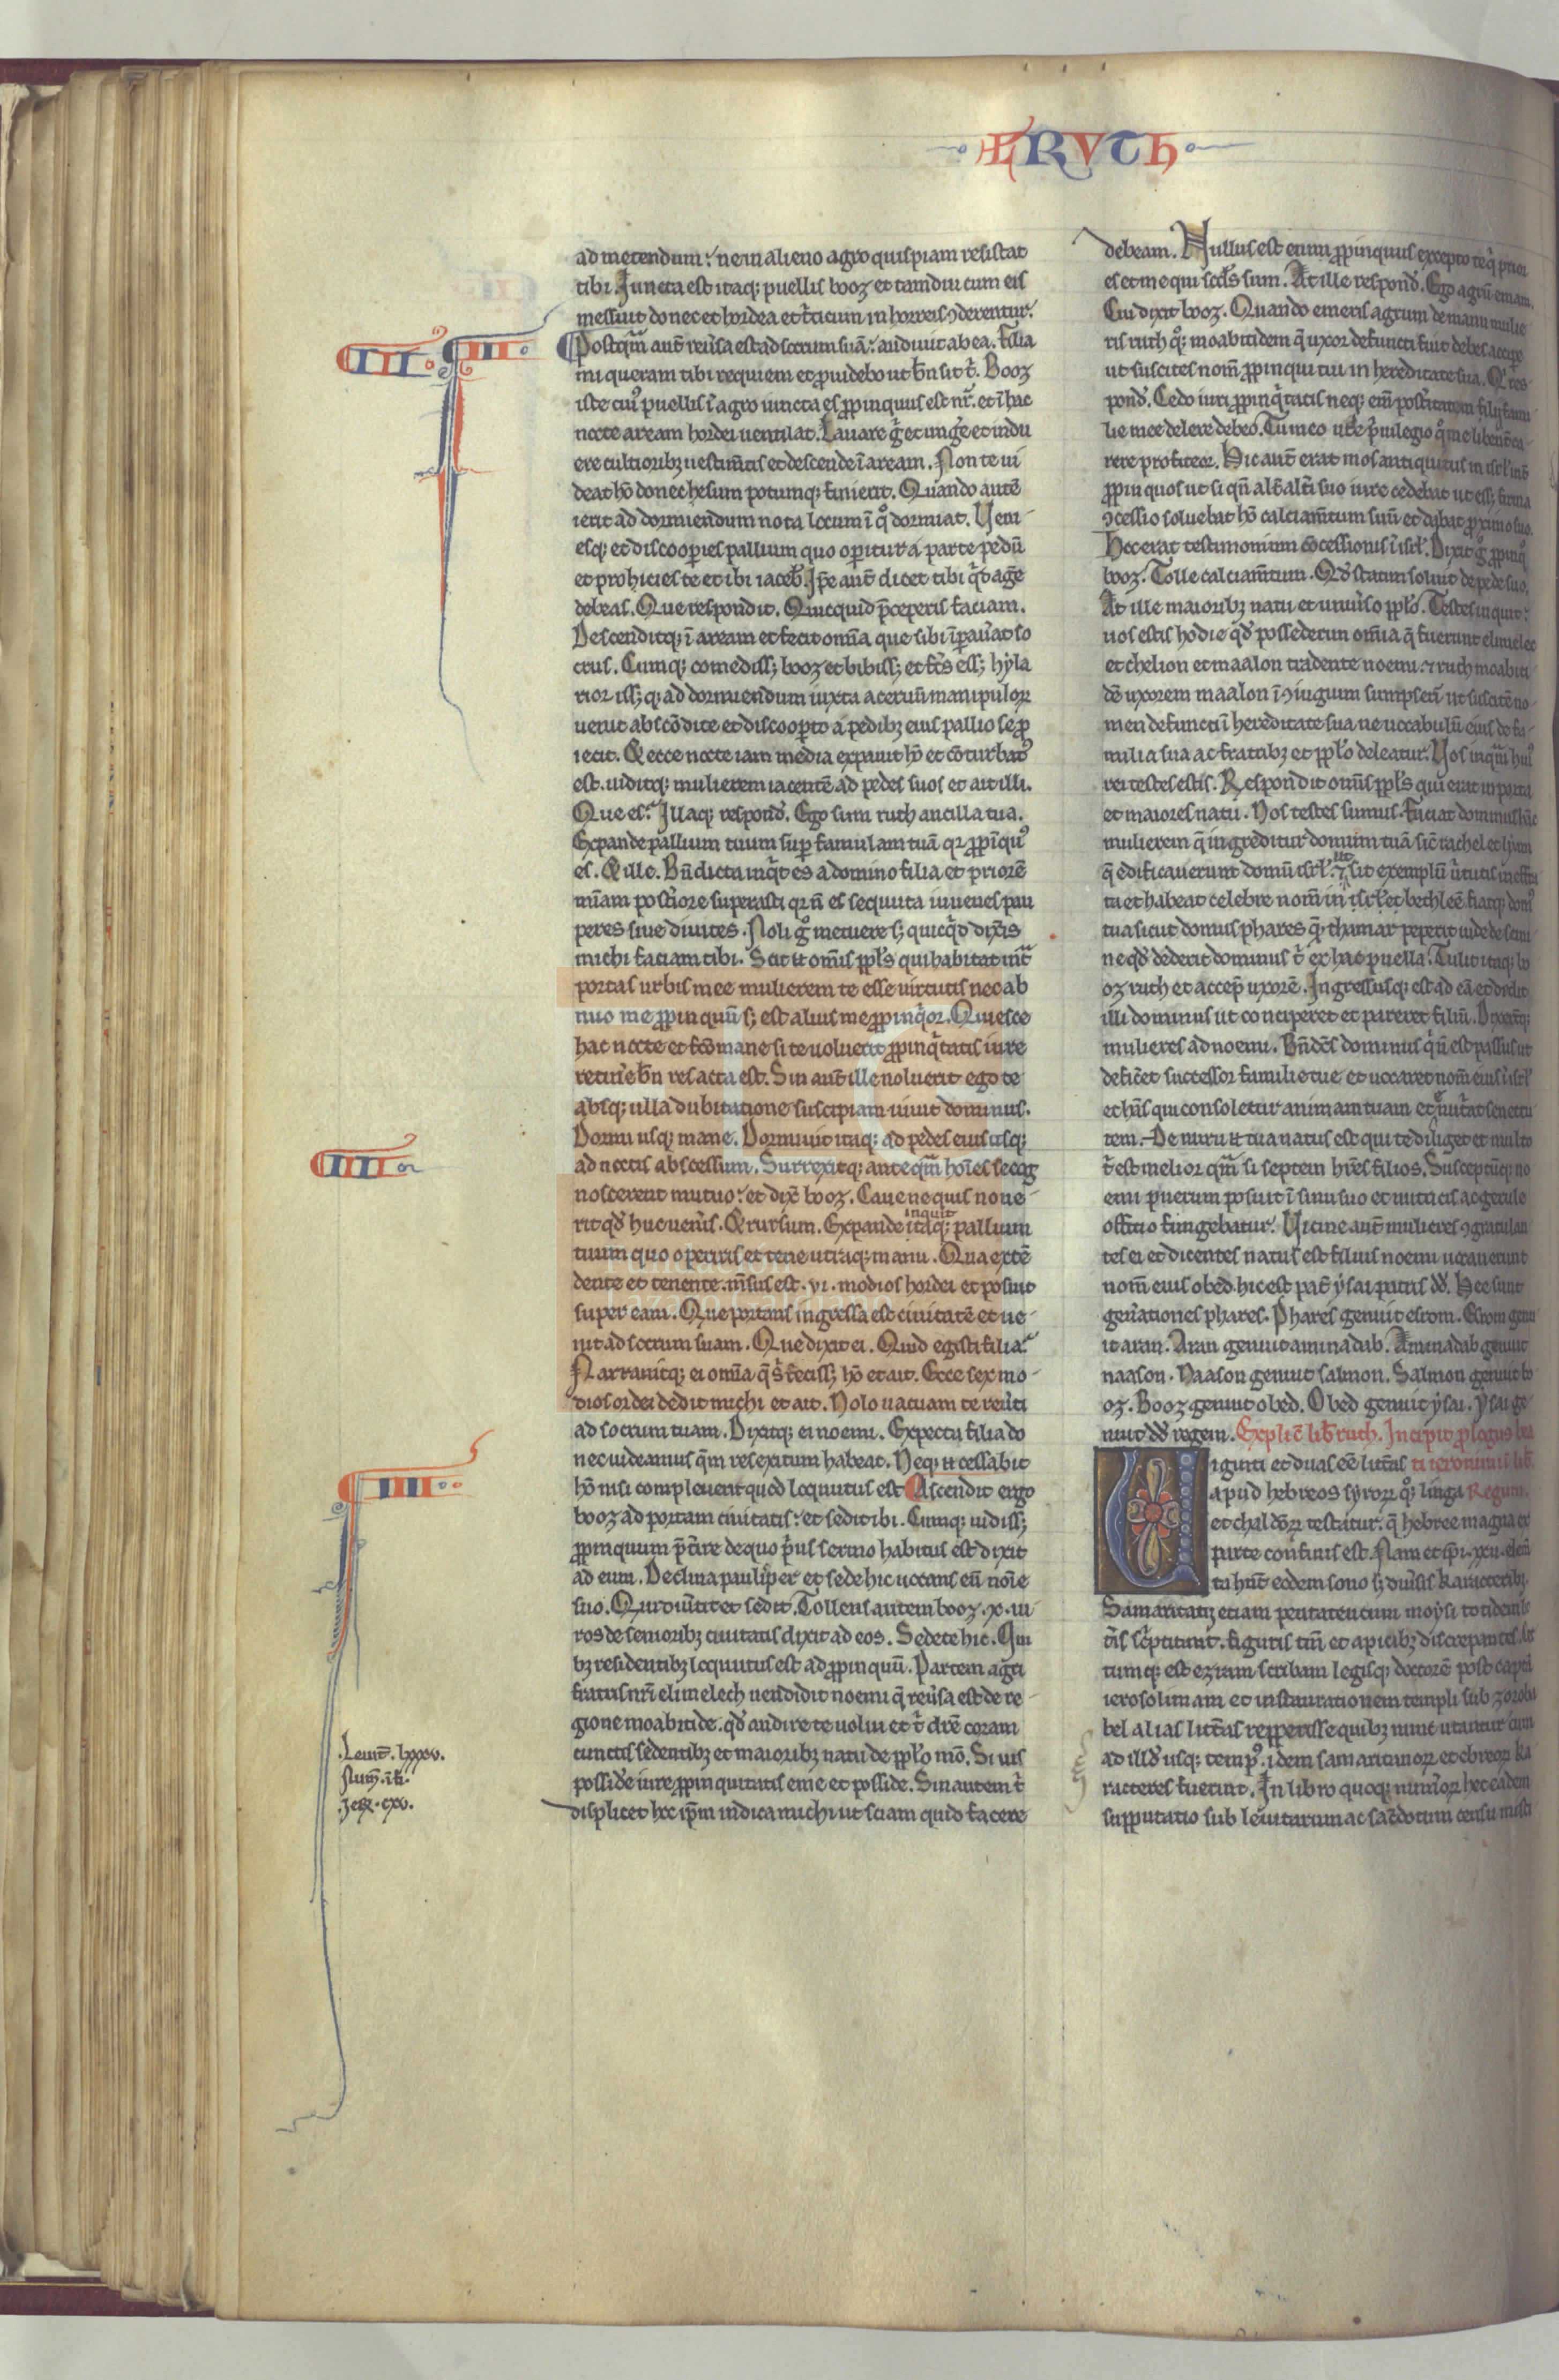 RVTH
ad metendum: ne in alieno agro quispiam resistat
tibi. Juncta est itaq; puellis booz et tamdiu cum eis
messuit donec et hordea et t̾ticum in horreis ꝯderentur.
III III
Postq̃m aut̃ reũsa est ad socrum suã: audiuit ab ea. Filia
mi queram tibi requiem et prouidebo ut bñ sit t̾. Booz
iste cui᷒ puellis ĩ agro iuncta es ꝓpinquus est nr̃. et ĩ hac
nocte aream hordei uentilat. Lauare g̾ et ung̾e et indu
ere cultiorib; uestim̃tis et descende ĩ aream. Non te ui
deat hõ donec hesum potumq; finierit. Quando autẽ
ierit ad dormiendum nota locum ĩ q̊ dormiat. Veni
esq; et discooperies pallium quo operitur a parte pedũ
et prohicies te et ibi iaceb̾. Ip̃e aut̃ dicet tibi q̾d ag̾e
debeas. Que respondit. Quicquid p̃ceperis faciam.
Descenditq; ĩ aream et fecit om̃ia que sibi ĩꝑau̾at so
crus. Cumq; comediss; booz et bibiss; et fc̃s ess; hyla
rior iss; q; ad dormiendum iuxta aceruũ manipuloꝝ
uenit abscõdite et discoopto a pedib; eius pallio se ꝓ
iecit. Et ecce nocte iam media expauit hõ et cõturbat᷒
est. uiditq; mulierem iacentẽ ad pedes suos et ait illi.
Que es? Illaq; respond̾. Ego sum ruth ancilla tua.
Expande pallium tuum suꝑ famulam tuã qꝛ ꝓpĩqu᷒
es. Et ille. Bñdicta inq̾t es a domino filia et priorẽ
mĩam post̾iore superasti qꝛ ñ es sequuta iuuenes pau
peres siue diuites. Noli g̊ metuere s; quicq̾d dix̾is
michi faciam tibi. Scit .n. om̃is ppl̾s qui habitat int̾
portas urbis mee mulierem te esse uirtutis nec ab
nuo me ꝓpinquũ s; est alius me ꝓpinq̾or. Quiesce
hac nocte et fc̃o mane si te uoluerit ꝓpinq̾tatis iure
retin̾e bñ res acta est. Sin aut̃ ille noluerit ego te
absq; ulla dubitatione suscipiam uiuit dominus.
Dormi usq; mane. Dormiuit itaq; ad pedes eius usq;
IIII
ad noctis abscessum. Surrexitq; anteq̃m hoĩes se cog
noscerent mutuo: et dix̾ booz. Caue ne quis noue
rit qd̾ huc uen̾is. Et rursum. Expande itaq; pallium
inquit
tuum quo operiris et tene utraq; manu. Qua extẽ
dente et tenente. m̃sus est .vi. modios hordei et posuit
super eam. Que portans ingressa est ciuitatẽ et ue
nit ad socrum suam. Que dixit ei. Quid egisti filia?
Narrauitq; ei om̃ia q̃ s̾ feciss; hõ et ait. Ecce sex mo
dios ordei dedit michi et ait. Nolo uacuam te reu̾ti
ad socrum tuam. Dixitq; ei noemi. Expecta filia do
nec uideamus q̃m res exitum habeat. Neq; .n. cessabit
IIII
hõ nisi compleuerit quod loquutus est Ascendit ergo
booz ad portam ciuitatis: et sedit ibi. Cumq; uidiss;
ꝓpinquum p̃t̾ire de quo p̾us sermo habitus est dixit
ad eum. Declina paulip̾er et sede hic uocans eũ noĩe
suo. Qui diu̾tit et sedit. Tollens autem booz .x. ui
ros de seniorib; ciuitatis dixit ad eos. Sedete hic. Qui
b; residentib; loquutus est ad ꝓpinquũ. Partem agri
fratris nr̃i elimelech uendidit noemi q̃ reu̾sa est de re
gione moabitide. qd̾ audire te uolui et t̾ dic̾e coram
cunctis sedentib; et maiorib; natu de ppl̾o mõ. Si uis
possid̾e iure ꝓpinquitatis eme et posside. Sin autem t̾
displicet hoc ip̃m indica michi ut sciam quid facere
.Leuit̾. lxxxv.
.Num̃. ii.
debeam. Nullus est enim ꝓpinquus excepto te q̾ prior
es et me qui sc̃ds sum. At ille respond̾. Ego agrũ emam.
Cui dixit booz. Quando emeris agrum de manu mulie
ris ruth q; moabitidem q̃ uxor defuncti fuit debes accipe
ut suscites nom̃ ꝓpinqui tui in hereditate sua. Q̾ res
pond̾. Cedo iuri ꝓpinq̾tatis neq; eñi posteritatem filij fami
lie mee delere debeo. Tu meo ut̾e p̾uilegio q̊ me libent̾ ca
rere profiteor. Hic aut̃ erat mos antiquitus in isrl̾ int̾
ꝓpinquos ut si qñ alt̾ alt̾i suo iure cedebat ut ess; firma
ꝯcessio soluebat hõ calciam̃tum suũ et dabat ꝓximo suo.
Hoc erat testimonium cõcessionis ĩ isrl̾. Dixit g̊ ꝓpinq᷒
booz. Tolle calciam̃tum. Qd̾ statim soluit de pede suo.
At ille maiorib; natu et uniu̾so ppl̾o. Testes inquit:
uos estis hodie qd̾ possederim om̃ia q̃ fuerunt elimelec
et chelion et maalon tradente noemi. et ruth moabiti
dẽ uxorem maalon ĩ ꝯiugium sumpseri ut suscitẽ no
men defuncti ĩ hereditate sua ne uocabulũ eius de fa
milia sua ac fratrib; et ppl̾o deleatur. Uos inquã hui᷒
rei testes estis. Respondit om̃is ppl̾s qui erat in porta
et maiores natu. Nos testes sumus. Faciat dominus hãc
mulierem q̃ ingreditur domum tuã sic̾ rachel et lyam
q̃ edificauerunt domũ isrl̾. ut sit exemplũ u̾tutis in effrata
et habeat celebre nom̃ in isrl̾ et bethleẽ fiatq; dom᷒
tua sicut domus phares q̃ thamar peperit iude de semi
ne qd̾ dederit dominus t̾ ex hac puella. Tulit itaq; bo
oz ruth et accep̾ uxorẽ. Ingressusq; est ad eã et dedit
illi dominus ut conciperet et pareret filiũ. Dixerũtq;
mulieres ad noemi. Bñdc̃s dominus q̾ ñ est passus ut
defic̾et successor familie tue et uocaret nom̃ eius ĩ isrl̾
et hẽs qui consoletur animam tuam et nut̾at senectu
tem. De nuru .n. tua natus est qui te diliget et multo
t̾ est melior q̃m si septem hr̃es filios. Susceptũq; no
emi puerum posuit ĩ sinu suo et nutricis ac gerule
officio fungebatur. Vicine aut̃ mulieres ꝯgratulan
tes ei et dicentes natus est filius noemi uocauerunt
nom̃ eius obed. hic est pat̾ ysai patris dd̾. Hee sunt
gen̾ationes phares. Phares genuit esrom. Esrom genu
it aran. Aran genuit aminadab. Aminadab genuit
naason. Naason genuit salmon. Salmon genuit bo
oz. Booz genuit obed. Obed genuit ysai. Ysai ge
nuit dd̾ regem. Explic̾ lib̾ ruth. Incipit ꝓlogus bea
Viginti et duas eẽ litt̾as ti ieronimi lib̾.
apud hebreos syroꝝ q; linga Regum.
et chaldeoꝝ testatur. q̃ hebree magna ex
parte confinis est. Nam et ip̃i .xxii. elem̃
ta hñt eodem sono s; diu̾sis karacterib;.
Samaritani etiam pentateucum moysi totidem lit
t̾is sc̾ptitant. figuris tm̃ et apicib; discrepantes. Cer
tumq; est ezram scribam legisq; doctorẽ post captã
ierosolimam et instaurationem templi sub zoroba
bel alias litt̾as repperisse quib; nunc utantur cum
ad illd̾ usq; temp᷒. idem samaritanoꝝ et ebreoꝝ ka
racteres fuerint. In libro quoq; numoꝝ hec eadem
supputatio sub leuitarum ac sac̾dotum censu misti